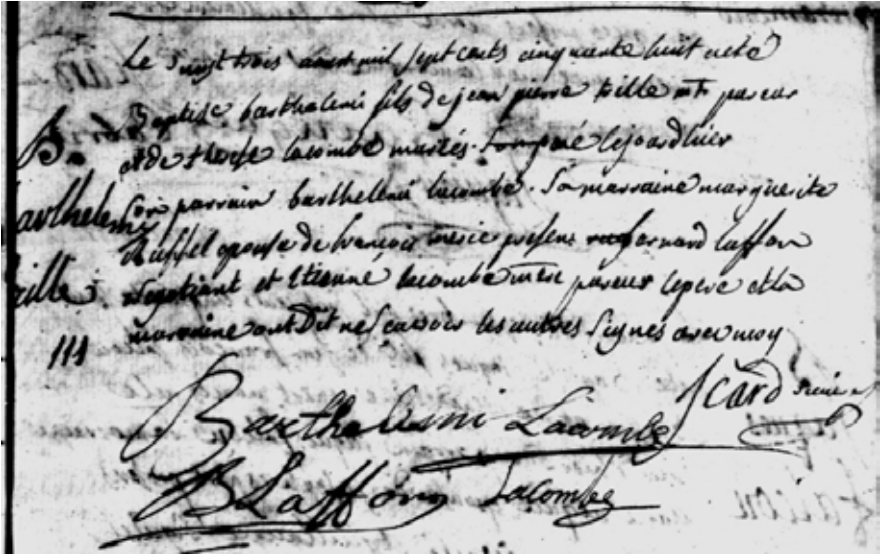 Le vingt trois aoust mil sept cents cinquante huit a eté
Baptisé barthelemi fils de jean pierre trille mtre pareur
et de therese lacombe mariés. Son père le jour d'hier
son parrain barthelemi lacombe. Sa marraine marguerite
Ruffel epouse de françois presens bernard laffon
negotiant et Etienne lacombe pareur le pere et la
marraine ont dit ne sçavoir les autres signés avec moy
B.
Barthelemy
trille
111
Barthelemi Lacombe Icard
B Laffon Lacombe